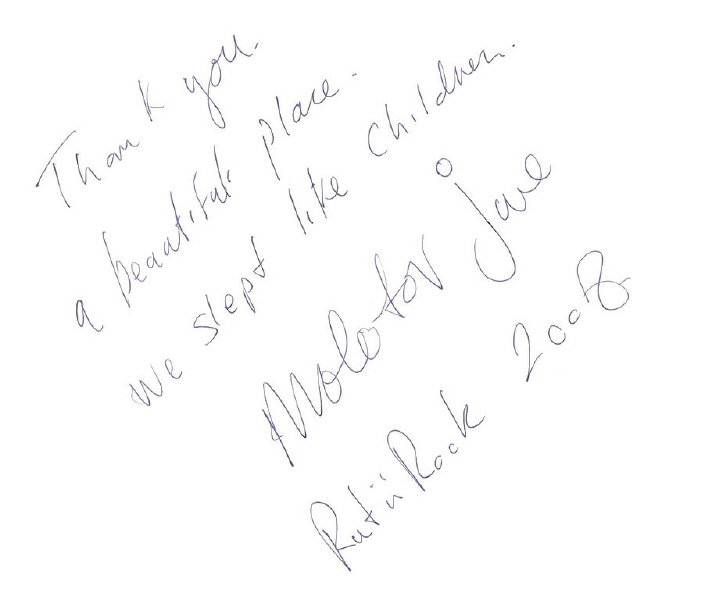 Thank you.
a beautiful place.
we slept like children.
Molotov Jive
RütiRock 2008